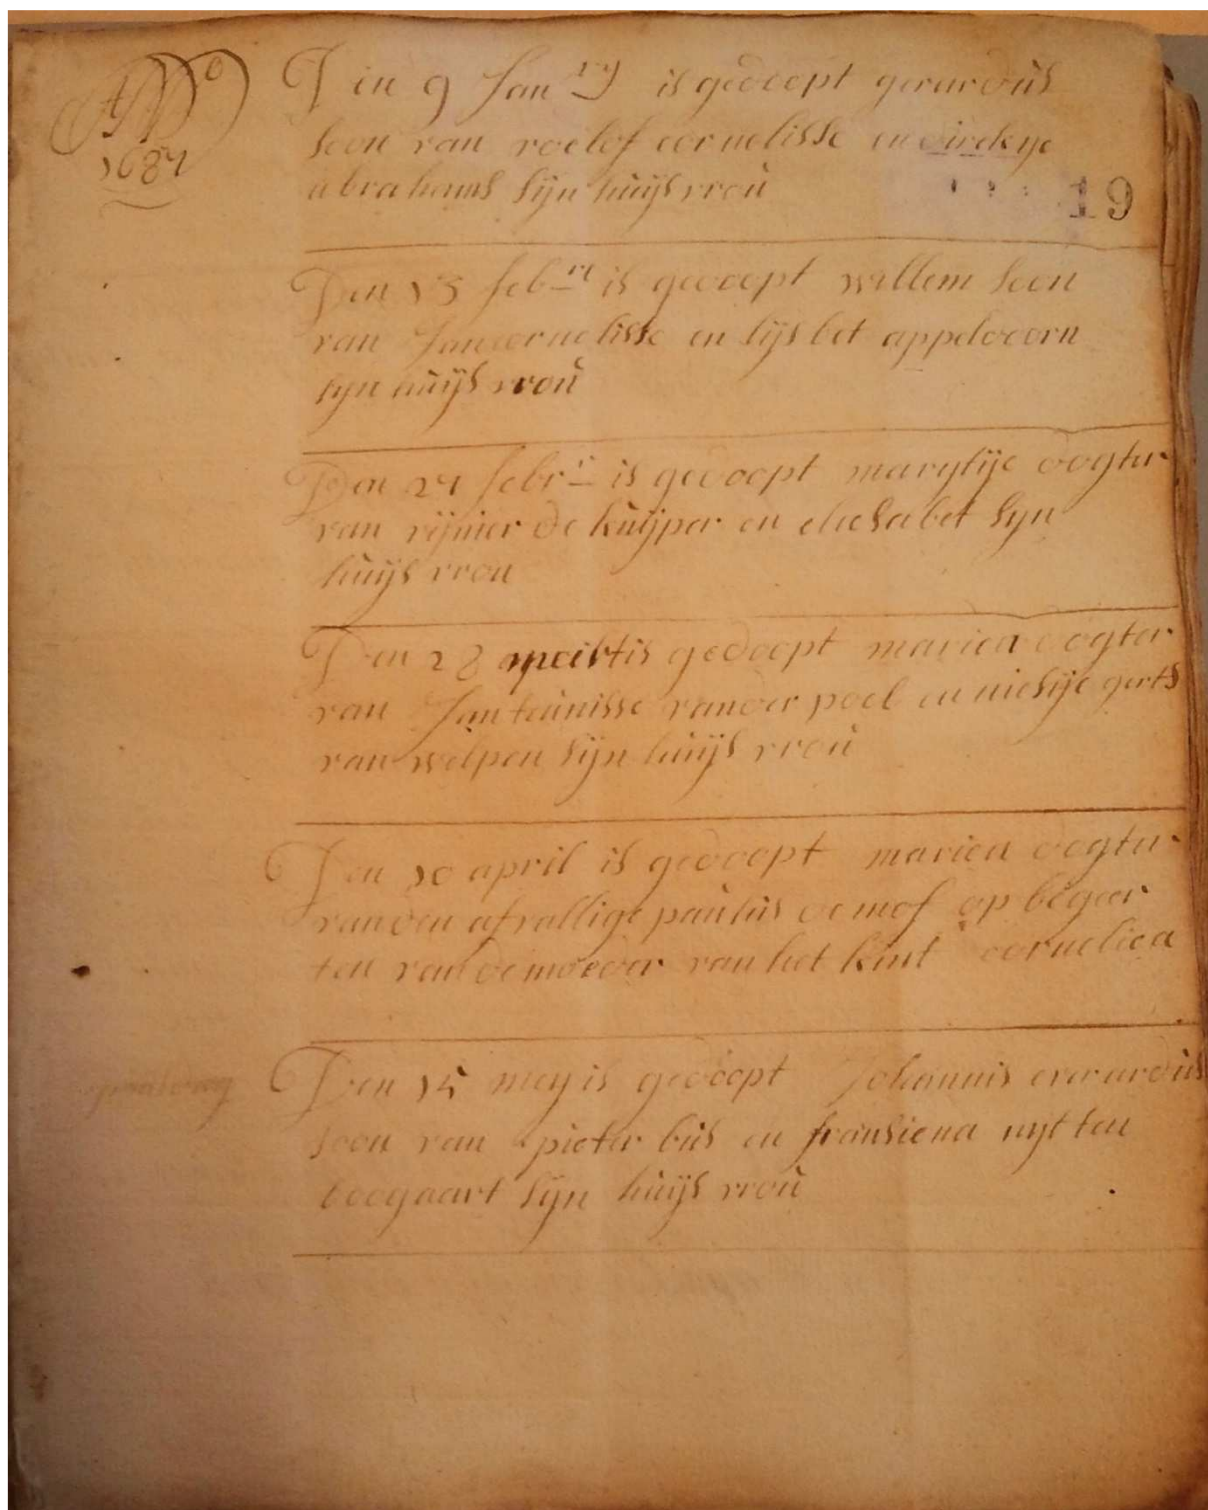 Ano
1687
Den 9 Jan ry is gedoopt gerardus
soon van roelof cornelisse en dirckye
abrahams sijn huijs vroù
19
Den 15 feb ri is gedoopt willem soon
van Jan cornelisse en lijsbet appeldoorn
sijn huijs vroù
Den 24 febr ii is gedoopt marytije dogter
van rijnier de kuijper en eliesabet syn
huijs vrou
Den 28 is gedoopt mariea dogter
van Jan teunisse vander poel en niesije gerts
van welpen sijn huijs vroù
Den 10 april is gedoopt mariea dogter
van den afvallige paulus de mof op begeer
ten van de moeder van het kint corneliea
Den 15 mey is gedoopt Johannis everardus
soon van pieter bus en fransiena uyt ten
boogaart sijn huijs vroù